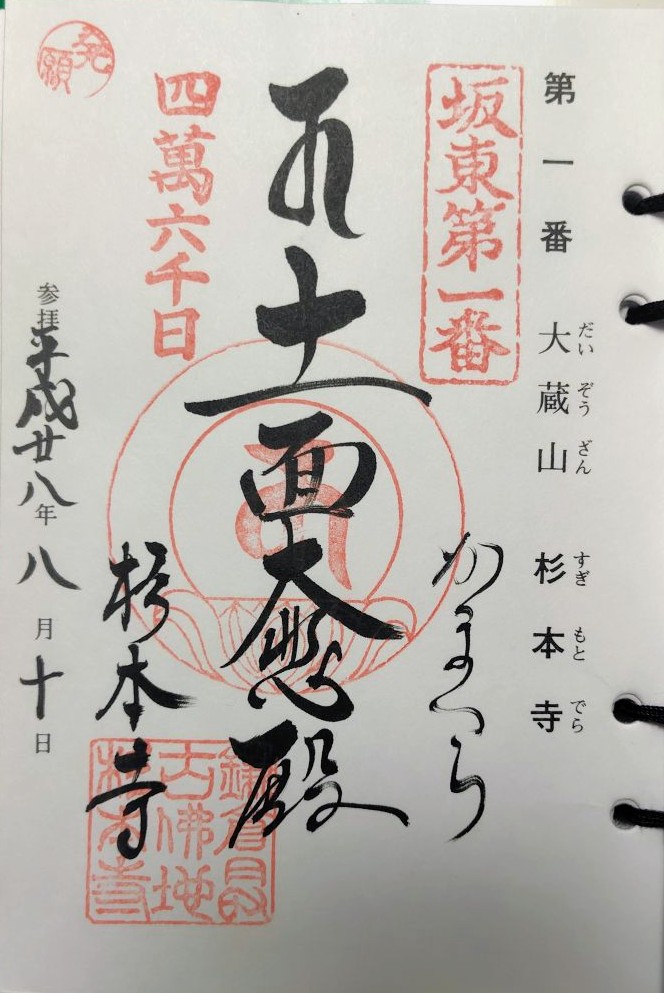 だいぞうざん すぎもとでら
第一番 大蔵山 杉本寺
坂東第一番
かまくら
十一面大悲殿
四萬六千日
杉本寺
鎌倉最
古佛地
杉本寺
発願
参拝平成廿八年八月十日